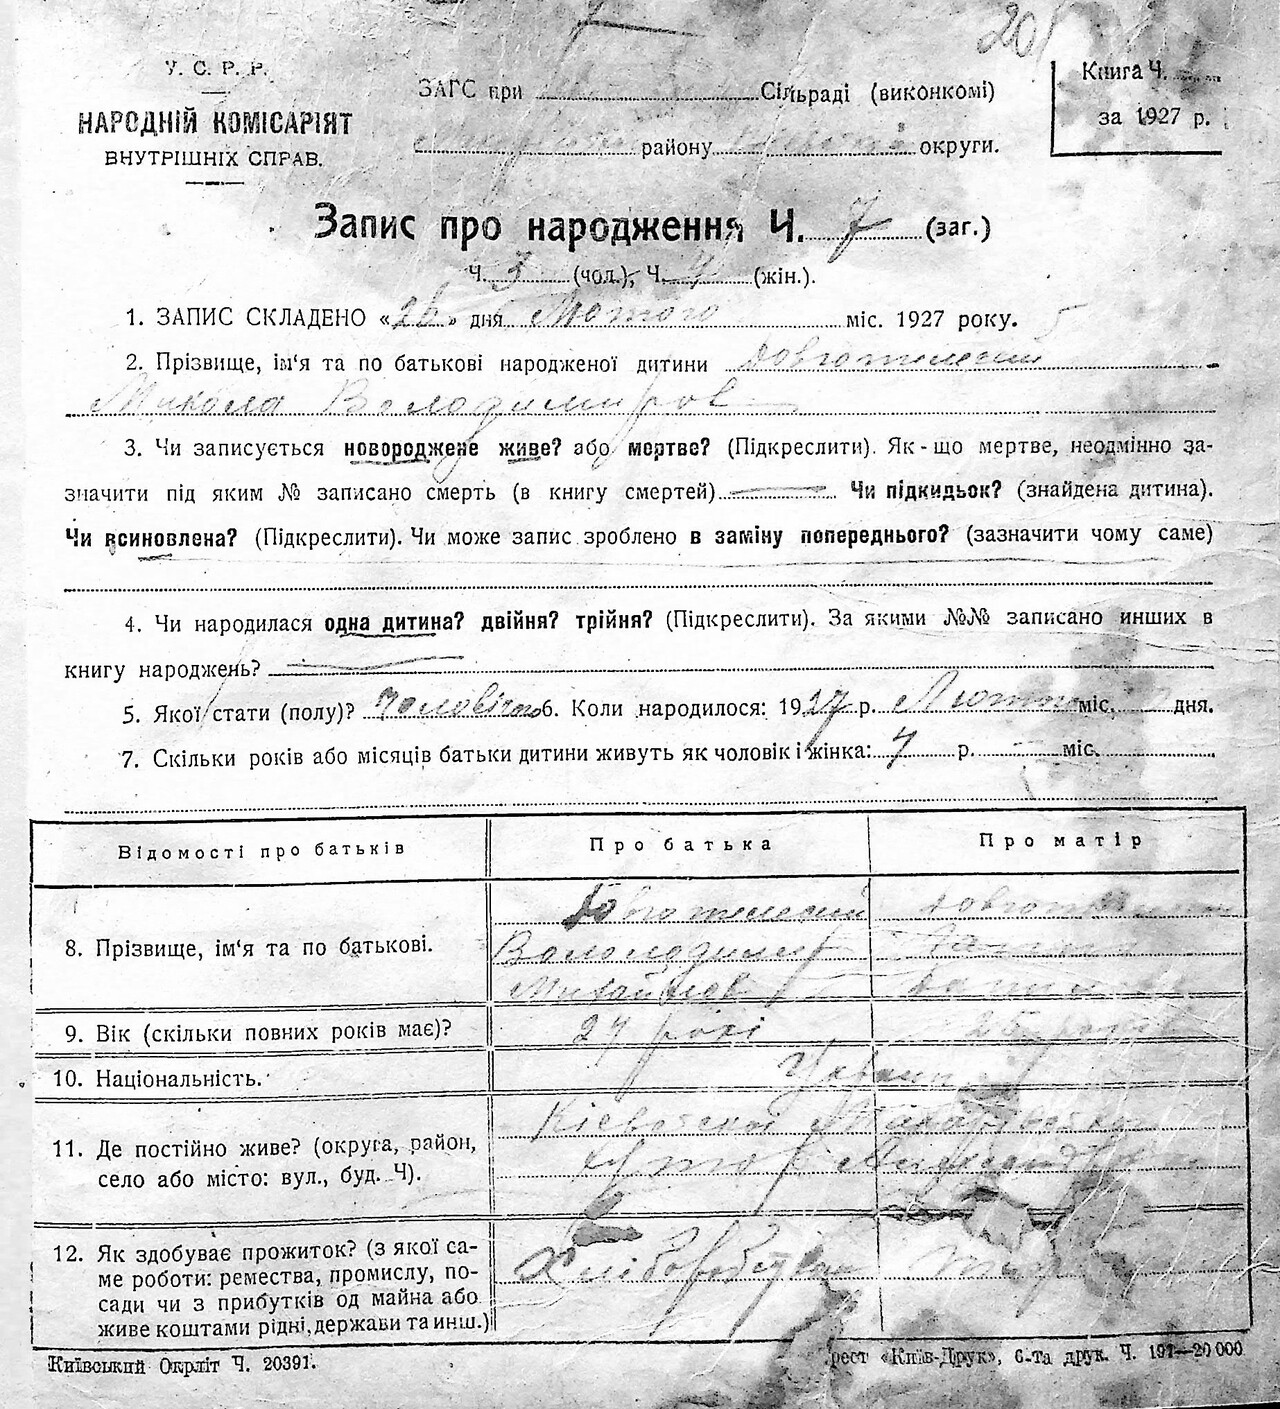 20
У. С. Р. Р.
НАРОДНІЙ КОМІСАРІЯТ
ВНУТРІШНІХ СПРАВ.
ЗАГС при Сільраді (виконкомі)
району округи.
Книга Ч.
за 1927 р.
Запис про народження Ч. 7 (заг.)
Ч. 3 (чол.), Ч. 4 (жін.).
1. ЗАПИС СКЛАДЕНО «26» дня Лютого міс. 1927 року.
2. Прізвище, ім'я та по батькові народженої дитини Довготелесий
Микола Володимиров
3. Чи записується новороджене живе? або мертве? (Підкреслити). Як-що мертве, неодмінно за-
значити під яким № записано смерть (в книгу смертей) Чи підкидьок? (знайдена дитина).
Чи всиновлена? (Підкреслити). Чи може запис зроблено в заміну попереднього? (зазначити чому саме)
4. Чи народилася одна дитина? двійня? трійня? (Підкреслити). За якими №№ записано инших в
книгу народжень?
5. Якої стати (полу)? Чоловічого 6. Коли народилося: 1927 р. Лютого міс. дня.
7. Скільки років або місяців батьки дитини живуть як чоловік і жінка: 4 р. міс.
Відомості про батьків
Про батька
Про матір
8. Прізвище, ім'я та по батькові.
Довготелесий
Вололодимир
Михайлов
9. Вік (скільки повних років має)?
27 років
25 років
10. Національність.
Україн
11. Де постійно живе? (округа, район,
село або місто: вул., буд. Ч).
Кієвської Макарівськ
12. Як здобуває прожиток? (з якої са-
ме роботи: ремества, промислу, по-
сади чи з прибутків од майна або
живе коштами рідні, держави та инш.)
Хлібороб
Київський Окрліт Ч. 20391.
рест «Київ-Друк», 6-та друк. Ч. 191—20 000